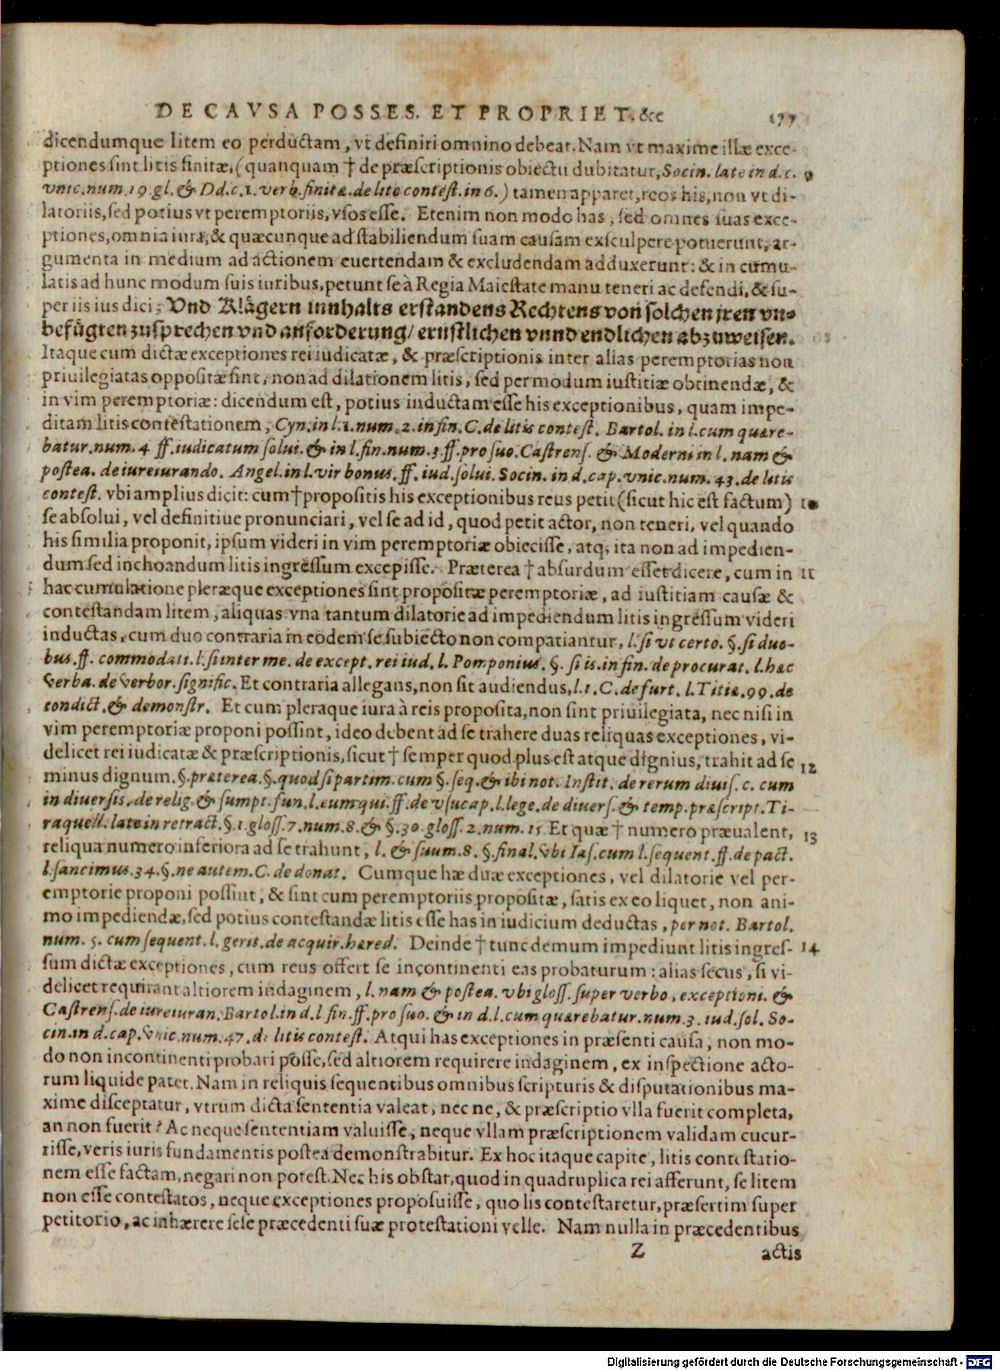 DE CAVSA POSSES. ET PROPRIET. &c 177
dicendumque litem eo perductam, vt definiri omnino debeat. Nam vt maxime illæ exce-
ptiones sint litis finitæ, (quanquam † de præscriptionis obiectu dubitatur, Socin. late in d. c. 9
vnic. num. 19. gl. & Dd. c. 1. verb. finitæ. de lite contest. in 6.) tamen apparet, reos his, non vt di-
latoriis, sed potius vt peremptoriis, vsos esse. Etenim non modo has, sed omnes suas exce-
ptiones, omnia iura, & quæcunque ad stabiliendum suam causam exsculpere potuerunt, ar-
gumenta in medium ad actionem euertendam & excludendam adduxerunt: & in cumu-
latis ad hunc modum suis iuribus, petunt se à Regia Maiestate manu teneri ac defendi, & su-
per iis ius dici, Vnd Klägern innhalts erstandens Rechtens von solchen jren vn-
befügten zusprechen vnd anforderung/ ernstlichen vnnd endlichen abzuweisen.
Itaque cum dictæ exceptiones rei iudicatæ, & præscriptionis inter alias peremptorias non
priuilegiatas oppositæ sint, non ad dilationem litis, sed per modum iustitiæ obtinendæ, &
in vim peremptoriæ: dicendum est, potius inductam esse his exceptionibus, quam impe-
ditam litis contestationem, Cyn. in l. 1. num. 2. in fin. C. de litis contest. Bartol. in l. cum quære-
batur. num. 4 ff. iudicatum solui. & in l. fin. num. 3. ff. pro suo. Castrens. & Moderni in l. nam &
postea. de iureiurando. Angel. in l. vir bonus. ff. iud. solui. Socin. in d. cap. vnic. num. 43. de litis
contest. vbi amplius dicit: cum † propositis his exceptionibus reus petit (sicut hic est factum) 10
se absolui, vel definitiue pronunciari, vel se ad id, quod petit actor, non teneri, vel quando
his similia proponit, ipsum videri in vim peremptoriæ obiecisse, atq; ita non ad impedien-
dum sed inchoandum litis ingressum excepisse. Præterea † absurdum esset dicere, cum in 11
hac cumulatione pleræque exceptiones sint propositæ peremptoriæ, ad iustitiam causæ &
contestandam litem, aliquas vna tantum dilatorie ad impediendum litis ingressum videri
inductas, cum duo contraria in eodem se subiecto non compatiantur, l. si vt certo. §. si duo-
bus. ff. commodati. l. si inter me. de except. rei iud. l. Pomponius. §. si is. in fin. de procurat. l. hæc
verba. de verbor. signific. Et contraria allegans, non sit audiendus, l. 1. C. de furt. l. Titiæ. 99. de
condict. & demonstr. Et cum pleraque iura à reis proposita, non sint priuilegiata, nec nisi in
vim peremptoriæ proponi possint, ideo debent ad se trahere duas reliquas exceptiones, vi-
delicet rei iudicatæ & præscriptionis, sicut † semper quod plus est atque dignius, trahit ad se 12
minus dignum. §. præterea. §. quod si partim. cum §. seq. & ibi not. Instit. de rerum diuis. c. cum
in diuersis. de relig. & sumpt. fun. l. eum qui. ff. de vsucap. l. lege. de diuers. & temp. præscript. Ti-
raquell. late in retract. §. 1. gloss. 7. num. 8. & §. 30. gloss. 2. num. 15 Et quæ † numero præualent, 13
reliqua numero inferiora ad se trahunt, l. & suum. 8. §. final. vbi Ias. cum l. sequent. ff. de pact.
l. sancimus. 34. §. ne autem. C. de donat. Cumque hæ duæ exceptiones, vel dilatorie vel per-
emptorie proponi possint, & sint cum peremptoriis propositæ, satis ex eo liquet, non ani-
mo impediendæ, sed potius contestandæ litis esse has in iudicium deductas, per not. Bartol.
num. 5. cum sequent. l. geris. de acquir. hæred. Deinde † tunc demum impediunt litis ingres- 14
sum dictæ exceptiones, cum reus offert se incontinenti eas probaturum: alias secus, si vi-
delicet requirant altiorem indaginem, l. nam & postea. vbi gloss. super verbo, exceptioni. &
Castrens. de iureiuran. Bartol. in d. l fin. ff. pro suo. & in d. l. cum quærebatur. num. 3. iud. sol. So-
cin. in d. cap. vnic. num. 47. d. litis contest. Atqui has exceptiones in præsenti causa, non mo-
do non incontinenti probari posse, sed altiorem requirere indaginem, ex inspectione acto-
rum liquide patet. Nam in reliquis sequentibus omnibus scripturis & disputationibus ma-
xime disceptatur, vtrum dicta sententia valeat, nec ne, & præscriptio vlla fuerit completa,
an non fuerit? Ac neque sententiam valuisse, neque vllam præscriptionem validam cucur-
risse, veris iuris fundamentis postea demonstrabitur. Ex hoc itaque capite, litis contestatio-
nem esse factam, negari non potest. Nec his obstat, quod in quadruplica rei afferunt, se litem
non esse contestatos, neque exceptiones proposuisse, quo lis contestaretur, præsertim super
petitorio, ac inhærere sese præcedenti suæ protestationi velle. Nam nulla in præcedentibus
Z actis
Digitalisierung gefördert durch die Deutsche Forschungsgemeinschaft - DFG